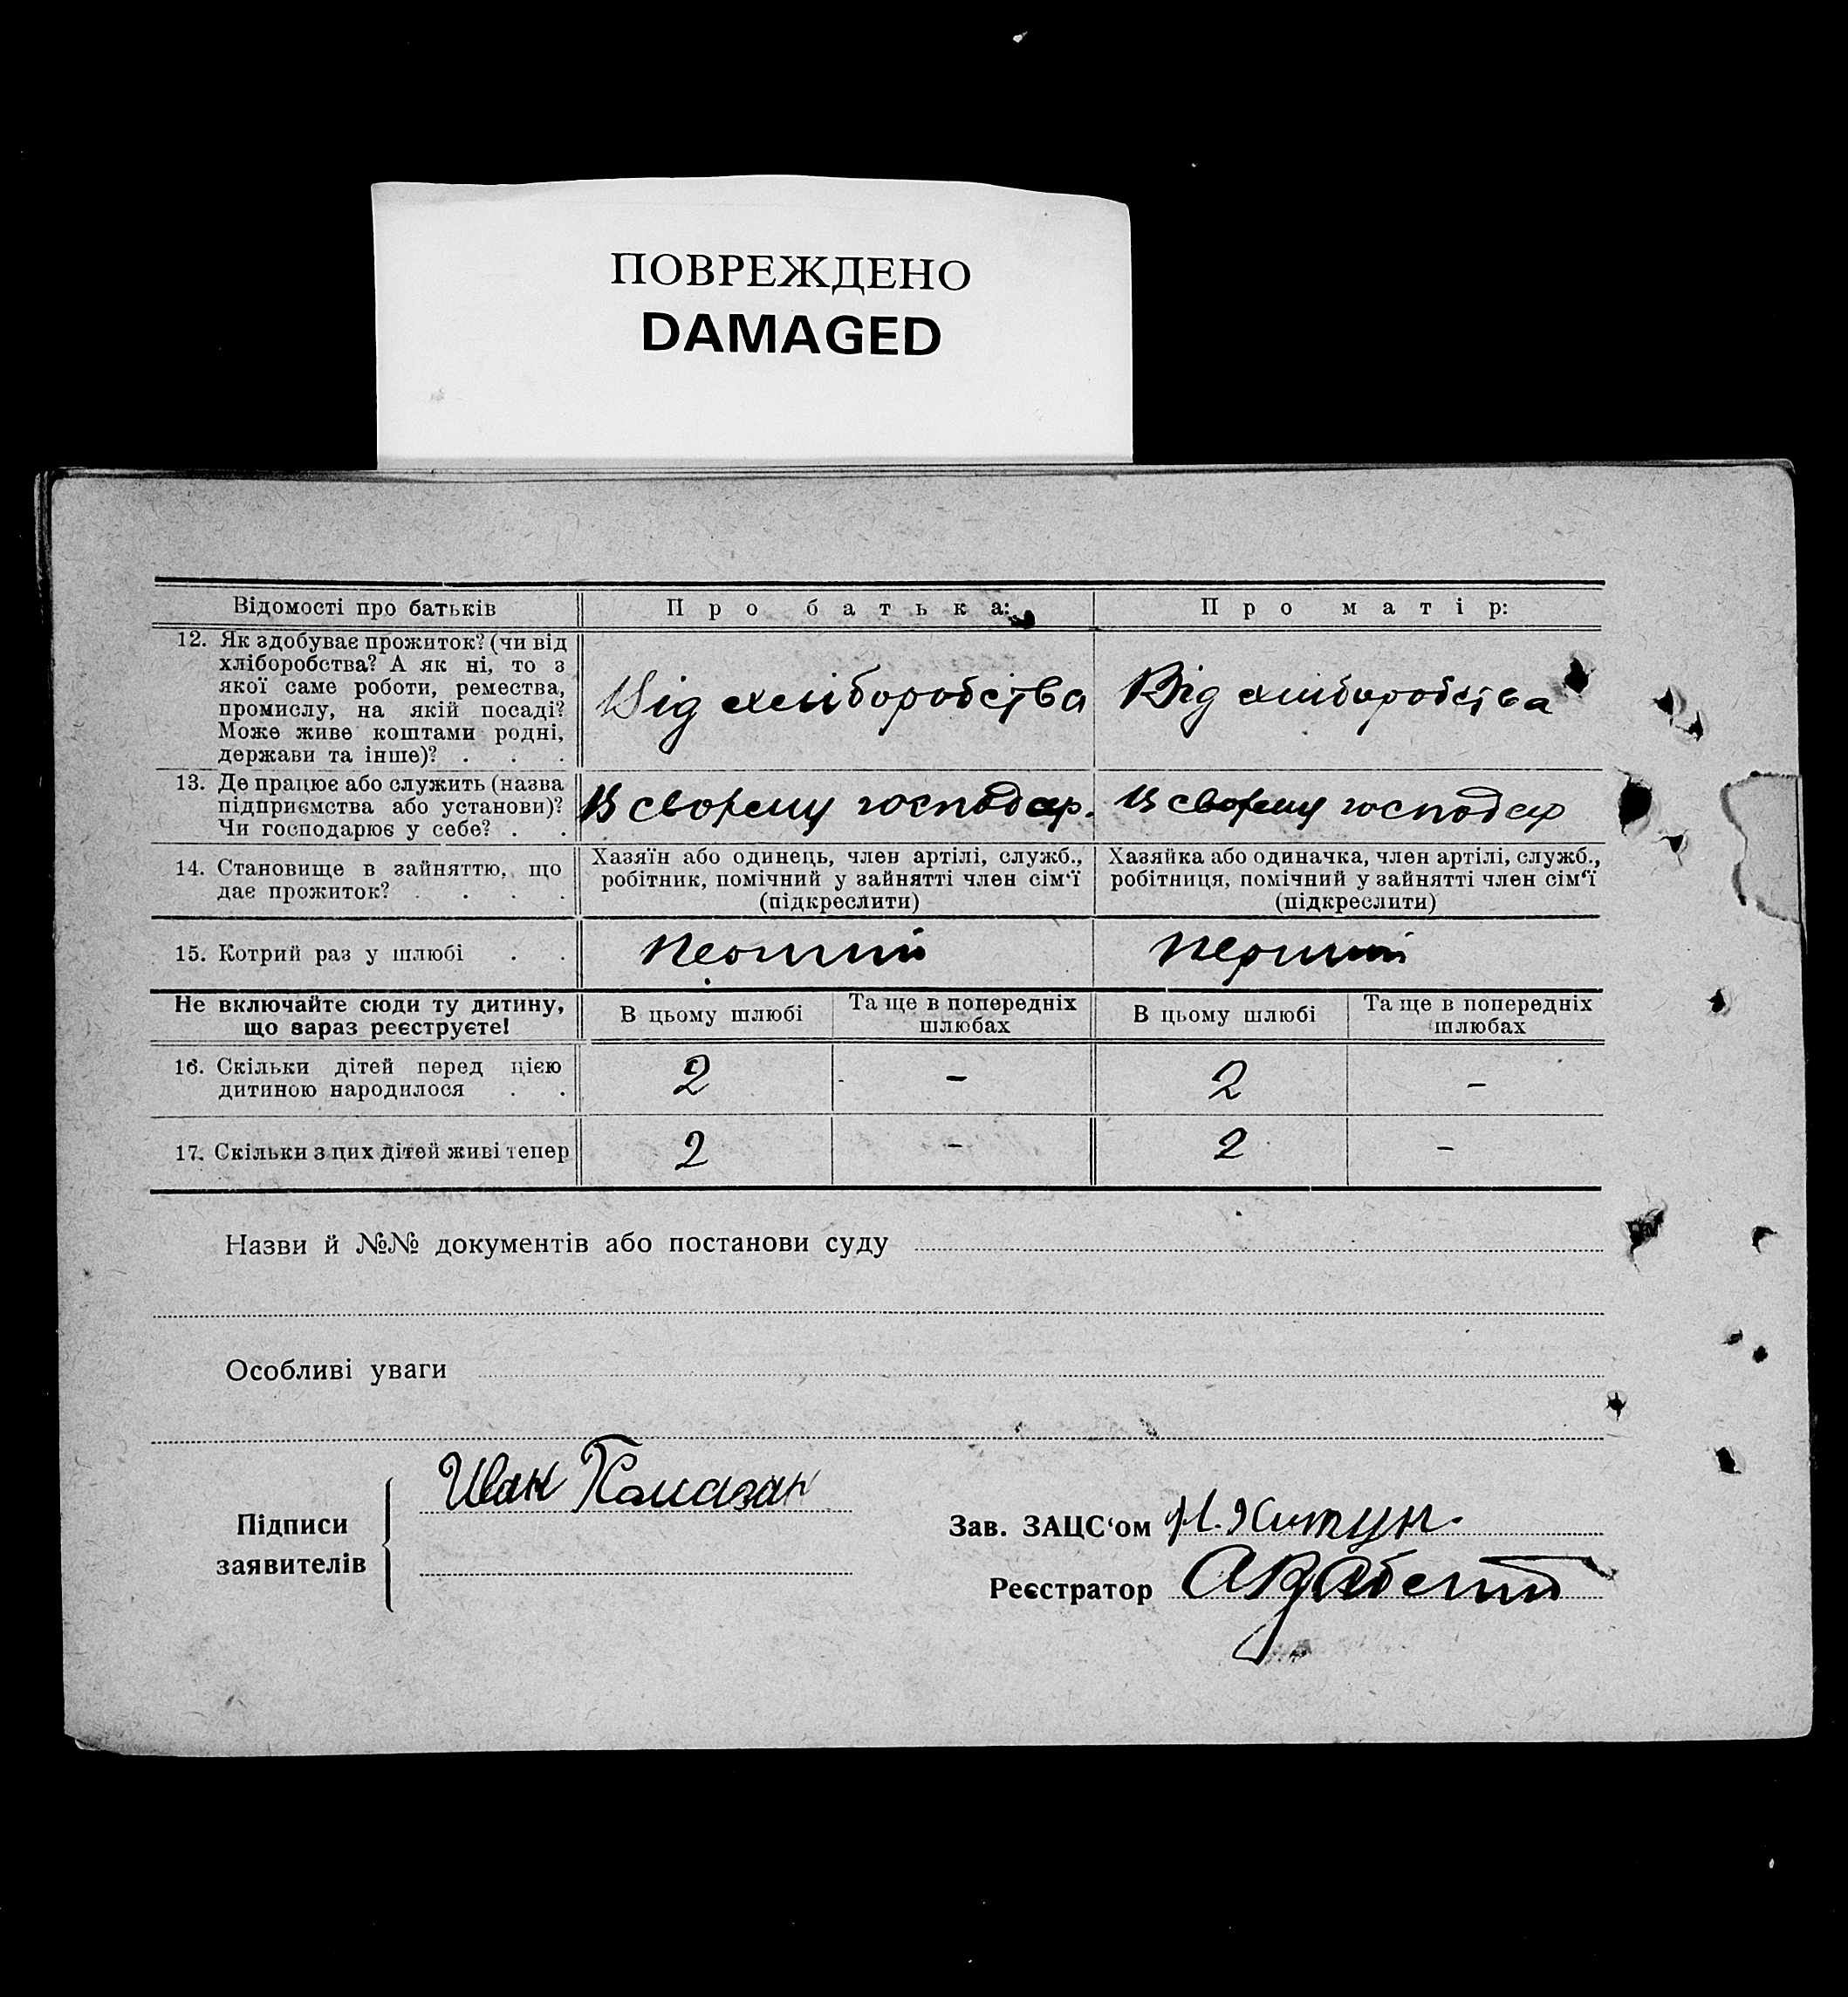 ПОВРЕЖДЕНО
DAMAGED
Відомості про батьків
Про батька:
Про матір:
12. Як здобуває прожиток? (чи від
хліборобства? А як ні, то з
якої саме роботи, ремества,
промислу, на якій посаді?
Може живе коштами родні,
держави та інше)? . . .
Від хліборобства
Від хліборобства
13. Де працює або служить (назва
підприємства або установи)?
Чи господарює у себе? . .
В своєму господар.
В своєму господар
14. Становище в зайняттю, що
дає прожиток? . . . .
Хазяїн або одинець, член артілі, служб.,
робітник, помічний у зайнятті член сім‘ї
(підкреслити)
Хазяйка або одиначка, член артілі, служб.,
робітниця, помічний у зайнятті член сім‘ї
(підкреслити)
15. Котрий раз у шлюбі . .
Перший
Перший
Не включайте сюди ту дитину,
що вараз реєструєте!
В цьому шлюбі
Та ще в попередніх
шлюбах
В цьому шлюбі
Та ще в попередніх
шлюбах
16. Скільки дітей перед цією
дитиною народилося . .
2
-
2
-
17. Скільки з цих дітей живі тепер
2
-
2
-
Назви й №№ документів або постанови суду
Особливі уваги
Підписи
заявителів
Иван
Зав. ЗАЦС‘ом
Реєстратор